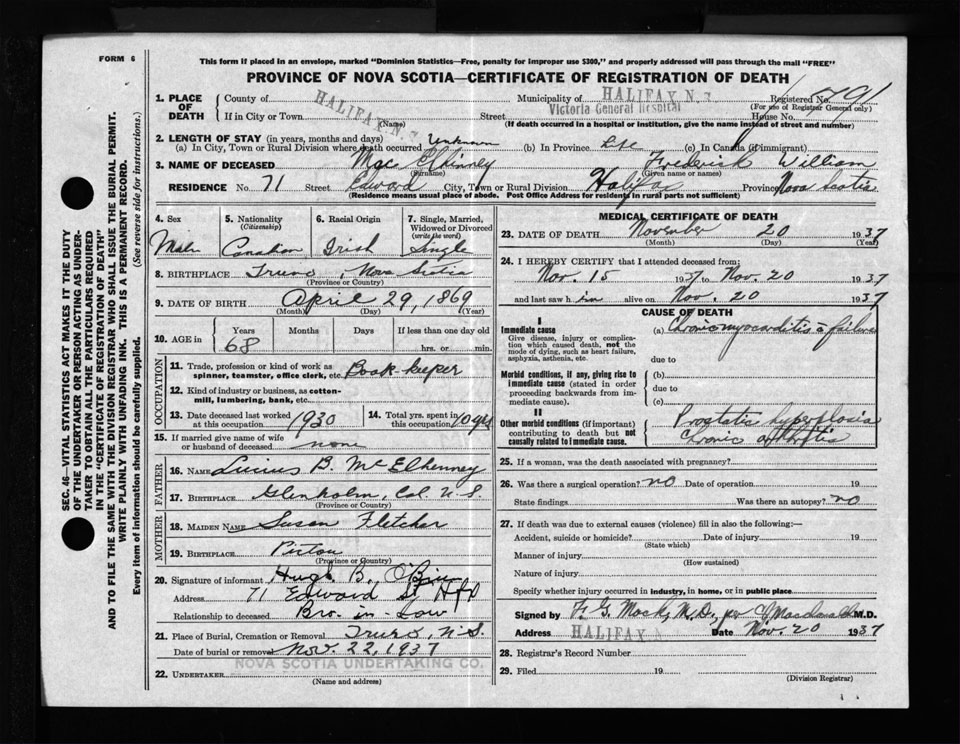 FORM 6
This form if placed in an envelope, marked "Dominion Statistics—Free, penalty for improper use $300," and properly addressed will pass through the mail "FREE"
PROVINCE OF NOVA SCOTIA—CERTIFICATE OF REGISTRATION OF DEATH
SEC. 46—VITAL STATISTICS ACT MAKES IT THE DUTY
OF THE UNDERTAKER OR PERSON ACTING AS UNDER-
TAKER TO OBTAIN ALL THE PARTICULARS REQUIRED
IN THE "CERTIFICATE OF REGISTRATION OF DEATH"
AND TO FILE THE SAME WITH THE DIVISION REGISTRAR WHO SHALL ISSUE THE BURIAL PERMIT.
WRITE PLAINLY WITH UNFADING INK. THIS IS A PERMANENT RECORD.
Every item of information should be carefully supplied. (See reverse side for instructions.)
1. PLACE OF DEATH County of HALIFAX N. Municipality of HALIFAX N. Registered No. 1791
(For use of Registrar General only)
If in City or Town Street Victoria General Hospital House No.
(If death occurred in a hospital or institution, give the name instead of street and number)
2. LENGTH OF STAY (in years, months and days)
(a) In City, Town or Rural Division where death occurred Unknown (b) In Province Life (c) In Canada (if immigrant)
3. NAME OF DECEASED Mac Elhinney Frederick William
(Surname) (Given name or names)
RESIDENCE No. 71 Street Edward City, Town or Rural Division Halifax Province Nova Scotia
(Residence means usual place of abode. Post Office Address for residency in rural parts not sufficient)
4. Sex Male
5. Nationality (Citizenship) Canadian
6. Racial Origin Irish
7. Single, Married, Widowed or Divorced (write the word) Single
8. BIRTHPLACE Truro, Nova Scotia
(Province or Country)
9. DATE OF BIRTH April 29, 1869
(Month) (Day) (Year)
10. AGE in Years 68 Months Days If less than one day old
hrs. or min.
OCCUPATION
11. Trade, profession or kind of work as
spinner, teamster, office clerk, etc. Book-keeper
12. Kind of industry or business, as cotton-
mill, lumbering, bank, etc.
13. Date deceased last worked at this occupation 1930
14. Total yrs. spent in this occupation 10 yrs
15. If married give name of wife
or husband of deceased none
FATHER
16. NAME Lucius B. McElhenney
17. BIRTHPLACE Glenholm, Col. N.S.
(Province or Country)
MOTHER
18. MAIDEN NAME Susan Fletcher
19. BIRTHPLACE Pictou
(Province or Country)
20. Signature of informant Hugh B. O'Brien
Address 71 Edward St Hfx
Relationship to deceased Bro-in-Law
21. Place of Burial, Cremation or Removal Truro, N.S.
Date of burial or removal Nov. 22, 1937
NOVA SCOTIA UNDERTAKING CO.
22. UNDERTAKER
(Name and address)
MEDICAL CERTIFICATE OF DEATH
23. DATE OF DEATH November 20 1937
(Month) (Day) (Year)
24. I HEREBY CERTIFY that I attended deceased from:
Nov. 15 1937 to Nov. 20 1937
and last saw him alive on Nov. 20 1937
CAUSE OF DEATH
I
Immediate cause
Give disease, injury or complica-
tion which caused death, not the
mode of dying, such as heart failure,
asphyxia, asthenia, etc.
(a) Chronic myocarditis & failure
due to
Morbid conditions, if any, giving rise to
immediate cause (stated in order
proceeding backwards from im-
mediate cause).
(b)
due to
(c)
II
Other morbid conditions (if important)
contributing to death but not
causally related to immediate cause.
Prostatic hyperplasia
Chronic arthritis
25. If a woman, was the death associated with pregnancy?
26. Was there a surgical operation? no Date of operation 19
State findings Was there an autopsy? no
27. If death was due to external causes (violence) fill in also the following:—
Accident, suicide or homicide? Date of injury 19
(State which)
Manner of injury
(How sustained)
Nature of injury
Specify whether injury occurred in industry, in home, or in public place
Signed by F. G. Mack, M.D., per Macdonald M.D.
Address HALIFAX Date Nov. 20 1937
28. Registrar's Record Number
29. Filed 19
(Division Registrar)